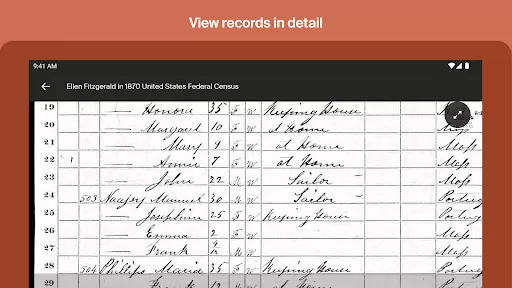 View records in detail
9:41 AM
Ellen Fitzgerald in 1870 United States Federal Census
19 — Honora 35 F W Keeping House
20 — Margaret 10 F W at Home
21 — Mary 9 F W at Home Mass
22 1 — Annie 7 F W at Home Mass
23 — John 22 M W Sailor Mass
24 503 Manuel 30 M W Sailor
25 — Josephine 25 F W Keeping House
26 — Emma 2 F W Mass
27 — Frank M W Mass
28 504 Phillips Maria 35 F W Keeping House
29 — Frank 12 M W